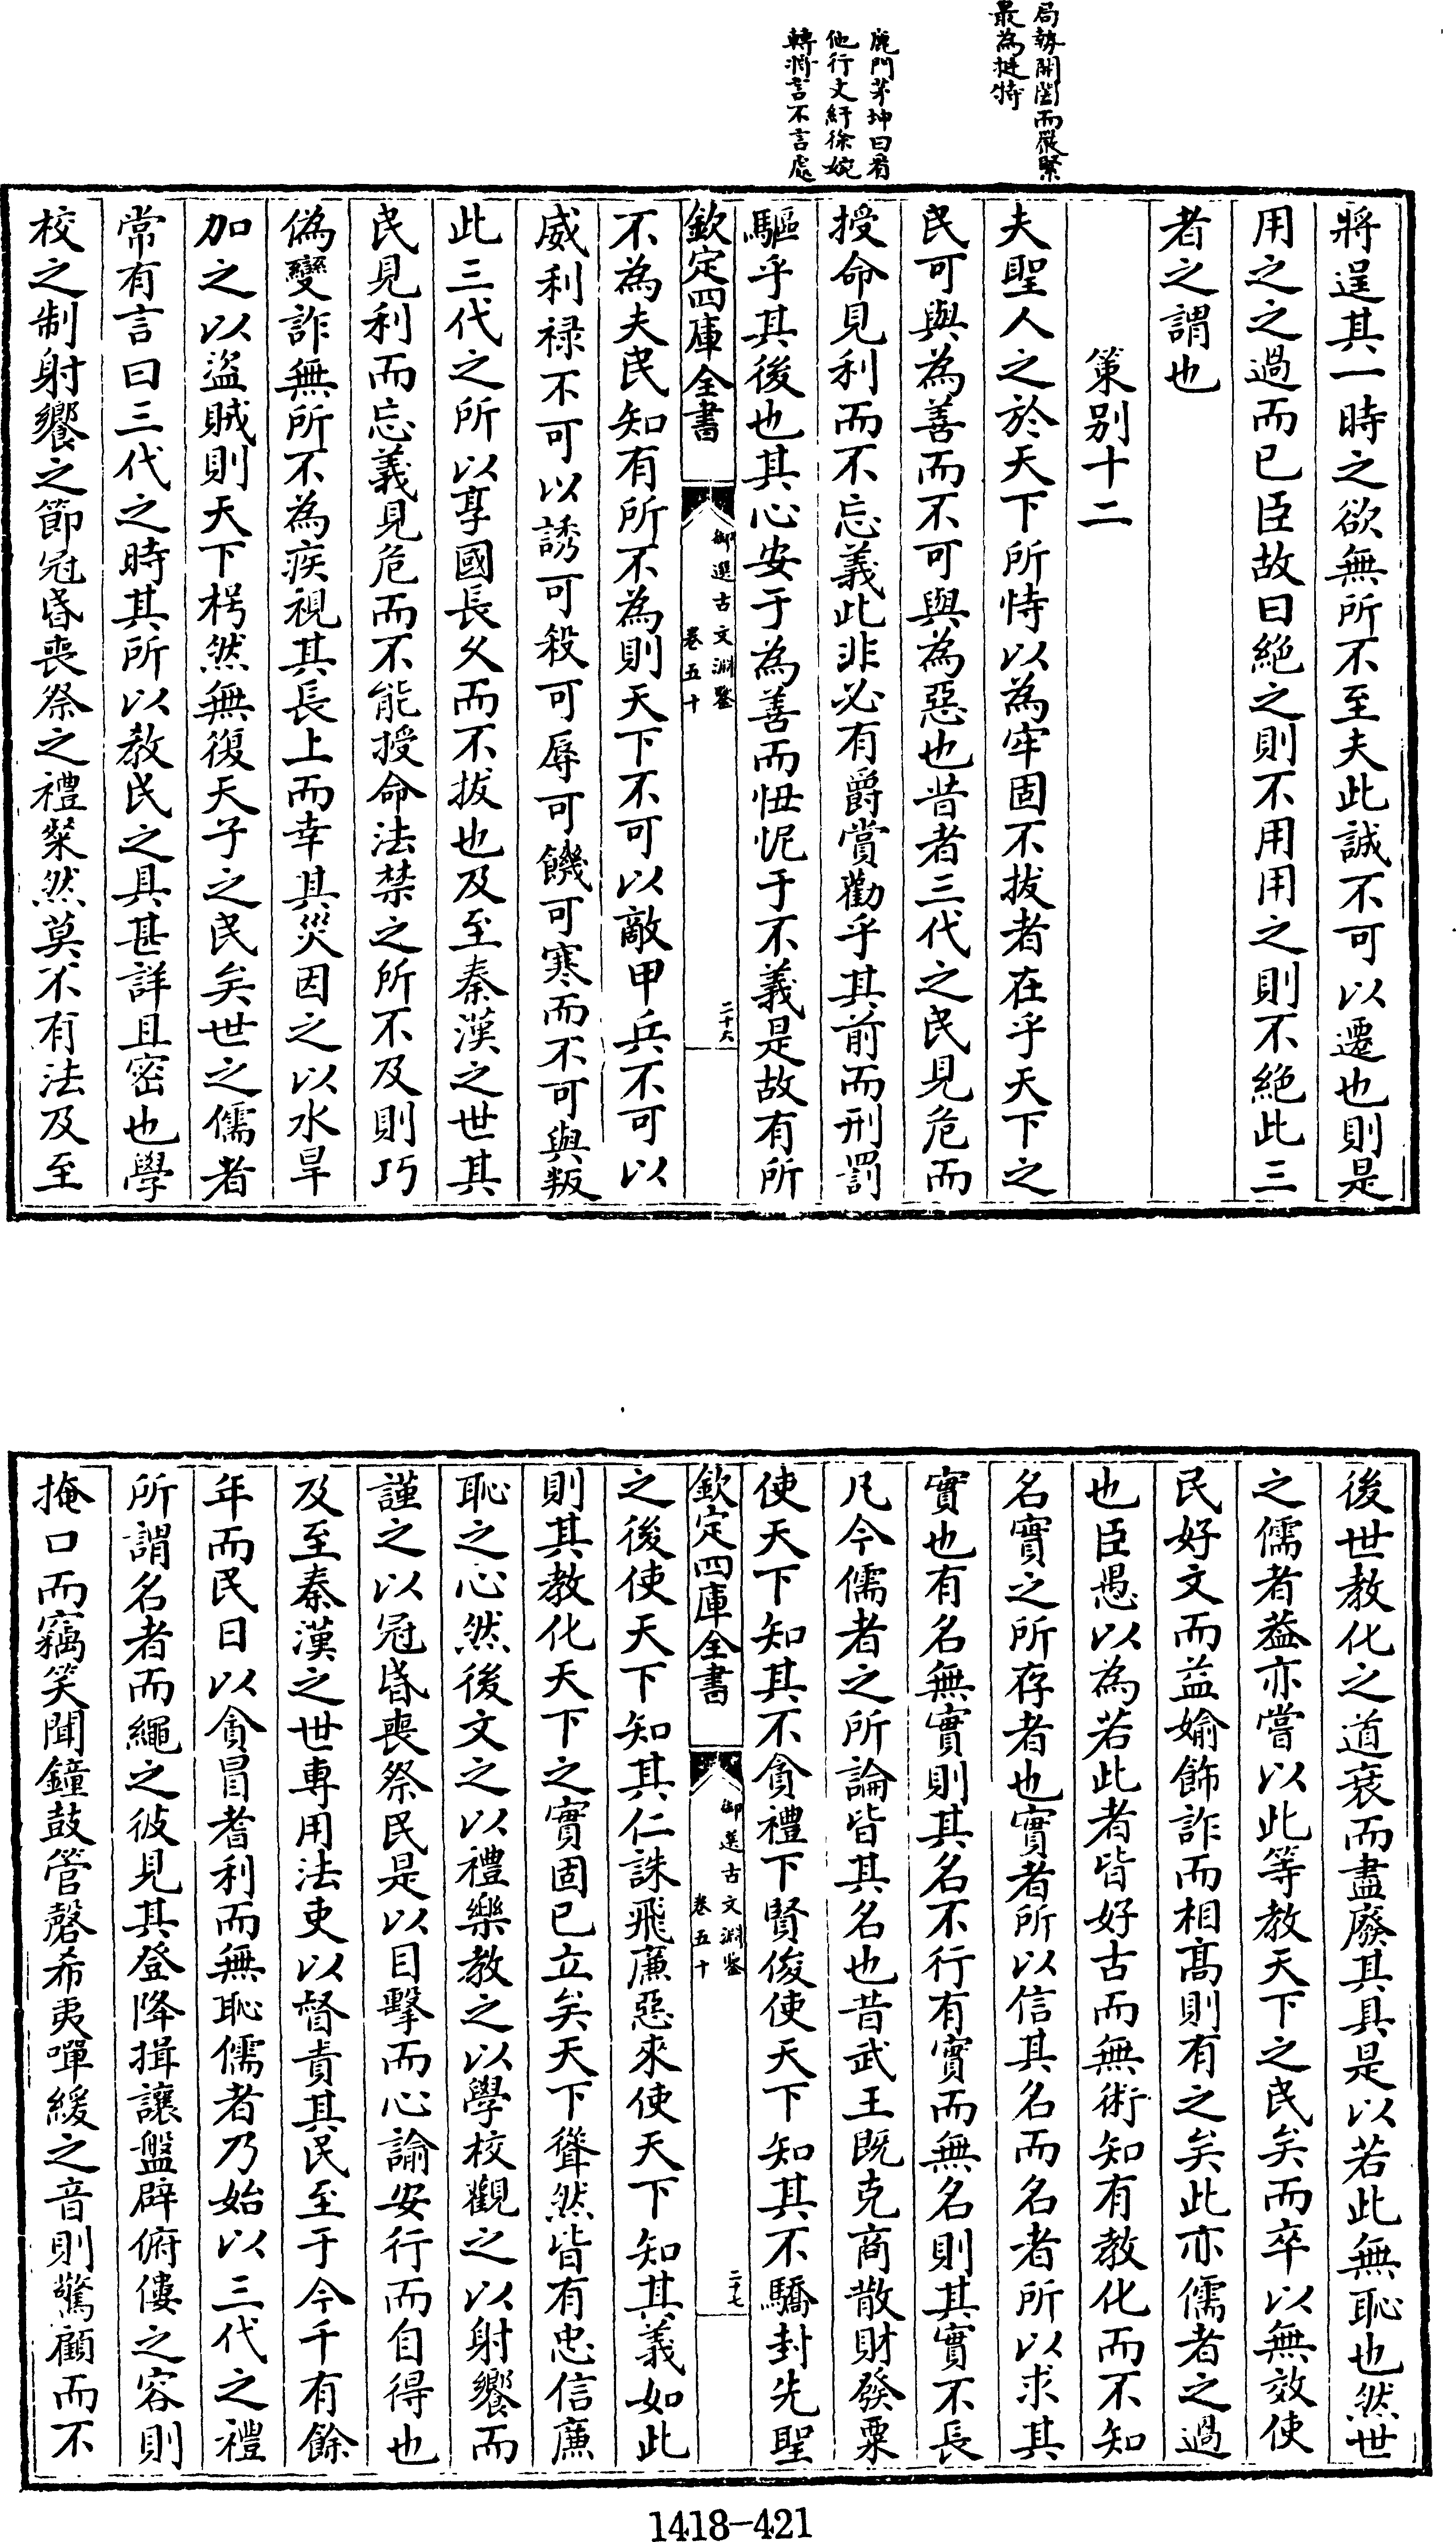 局勢開闊而嚴緊
最為挺特
鹿門茅坤曰看
他行文紆徐婉
轉將言不言處
將逞其一時之欲無所不至夫此誠不可以遷也則是
用之之過而已臣故曰絶之則不用用之則不絶此三
者之謂也
策别十二
夫聖人之於天下所恃以為牢固不拔者在乎天下之
民可與為善而不可與為惡也昔者三代之民見危而
授命見利而不忘義此非必有爵賞勸乎其前而刑罰
驅乎其後也其心安于為善而忸怩于不義是故有所
欽定四庫全書
御選古文淵鑒
卷五十
二十六
不為夫民知有所不為則天下不可以敵甲兵不可以
威利禄不可以誘可殺可辱可饑可寒而不可與叛
此三代之所以享國長久而不拔也及至秦漢之世其
民見利而忘義見危而不能授命法禁之所不及則巧
偽變詐無所不為疾視其長上而幸其災因之以水旱
加之以盜賊則天下枵然無復天子之民矣世之儒者
常有言曰三代之時其所以教民之具甚詳且密也學
校之制射饗之節冠昏喪祭之禮粲然莫不有法及至
後世教化之道衰而盡廢其具是以若此無恥也然世
之儒者葢亦嘗以此等教天下之民矣而卒以無效使
民好文而益媮飾詐而相髙則有之矣此亦儒者之過
也臣愚以為若此者皆好古而無術知有教化而不知
名實之所存者也實者所以信其名而名者所以求其
實也有名無實則其名不行有實而無名則其實不長
凡今儒者之所論皆其名也昔武王既克商散財發粟
使天下知其不貪禮下賢俊使天下知其不驕封先聖
欽定四庫全書
御選古文淵鑒
卷五十
二十七
之後使天下知其仁誅飛廉惡來使天下知其義如此
則其教化天下之實固已立矣天下聳然皆有忠信廉
恥之心然後文之以禮樂教之以學校觀之以射饗而
謹之以冠昏喪祭民是以目擊而心諭安行而自得也
及至秦漢之世專用法吏以督責其民至于今千有餘
年而民日以貪冒耆利而無恥儒者乃始以三代之禮
所謂名者而繩之彼見其登降揖讓盤辟俯僂之容則
掩口而竊笑聞鐘鼓管磬希夷嘽緩之音則驚顧而不
1418-421